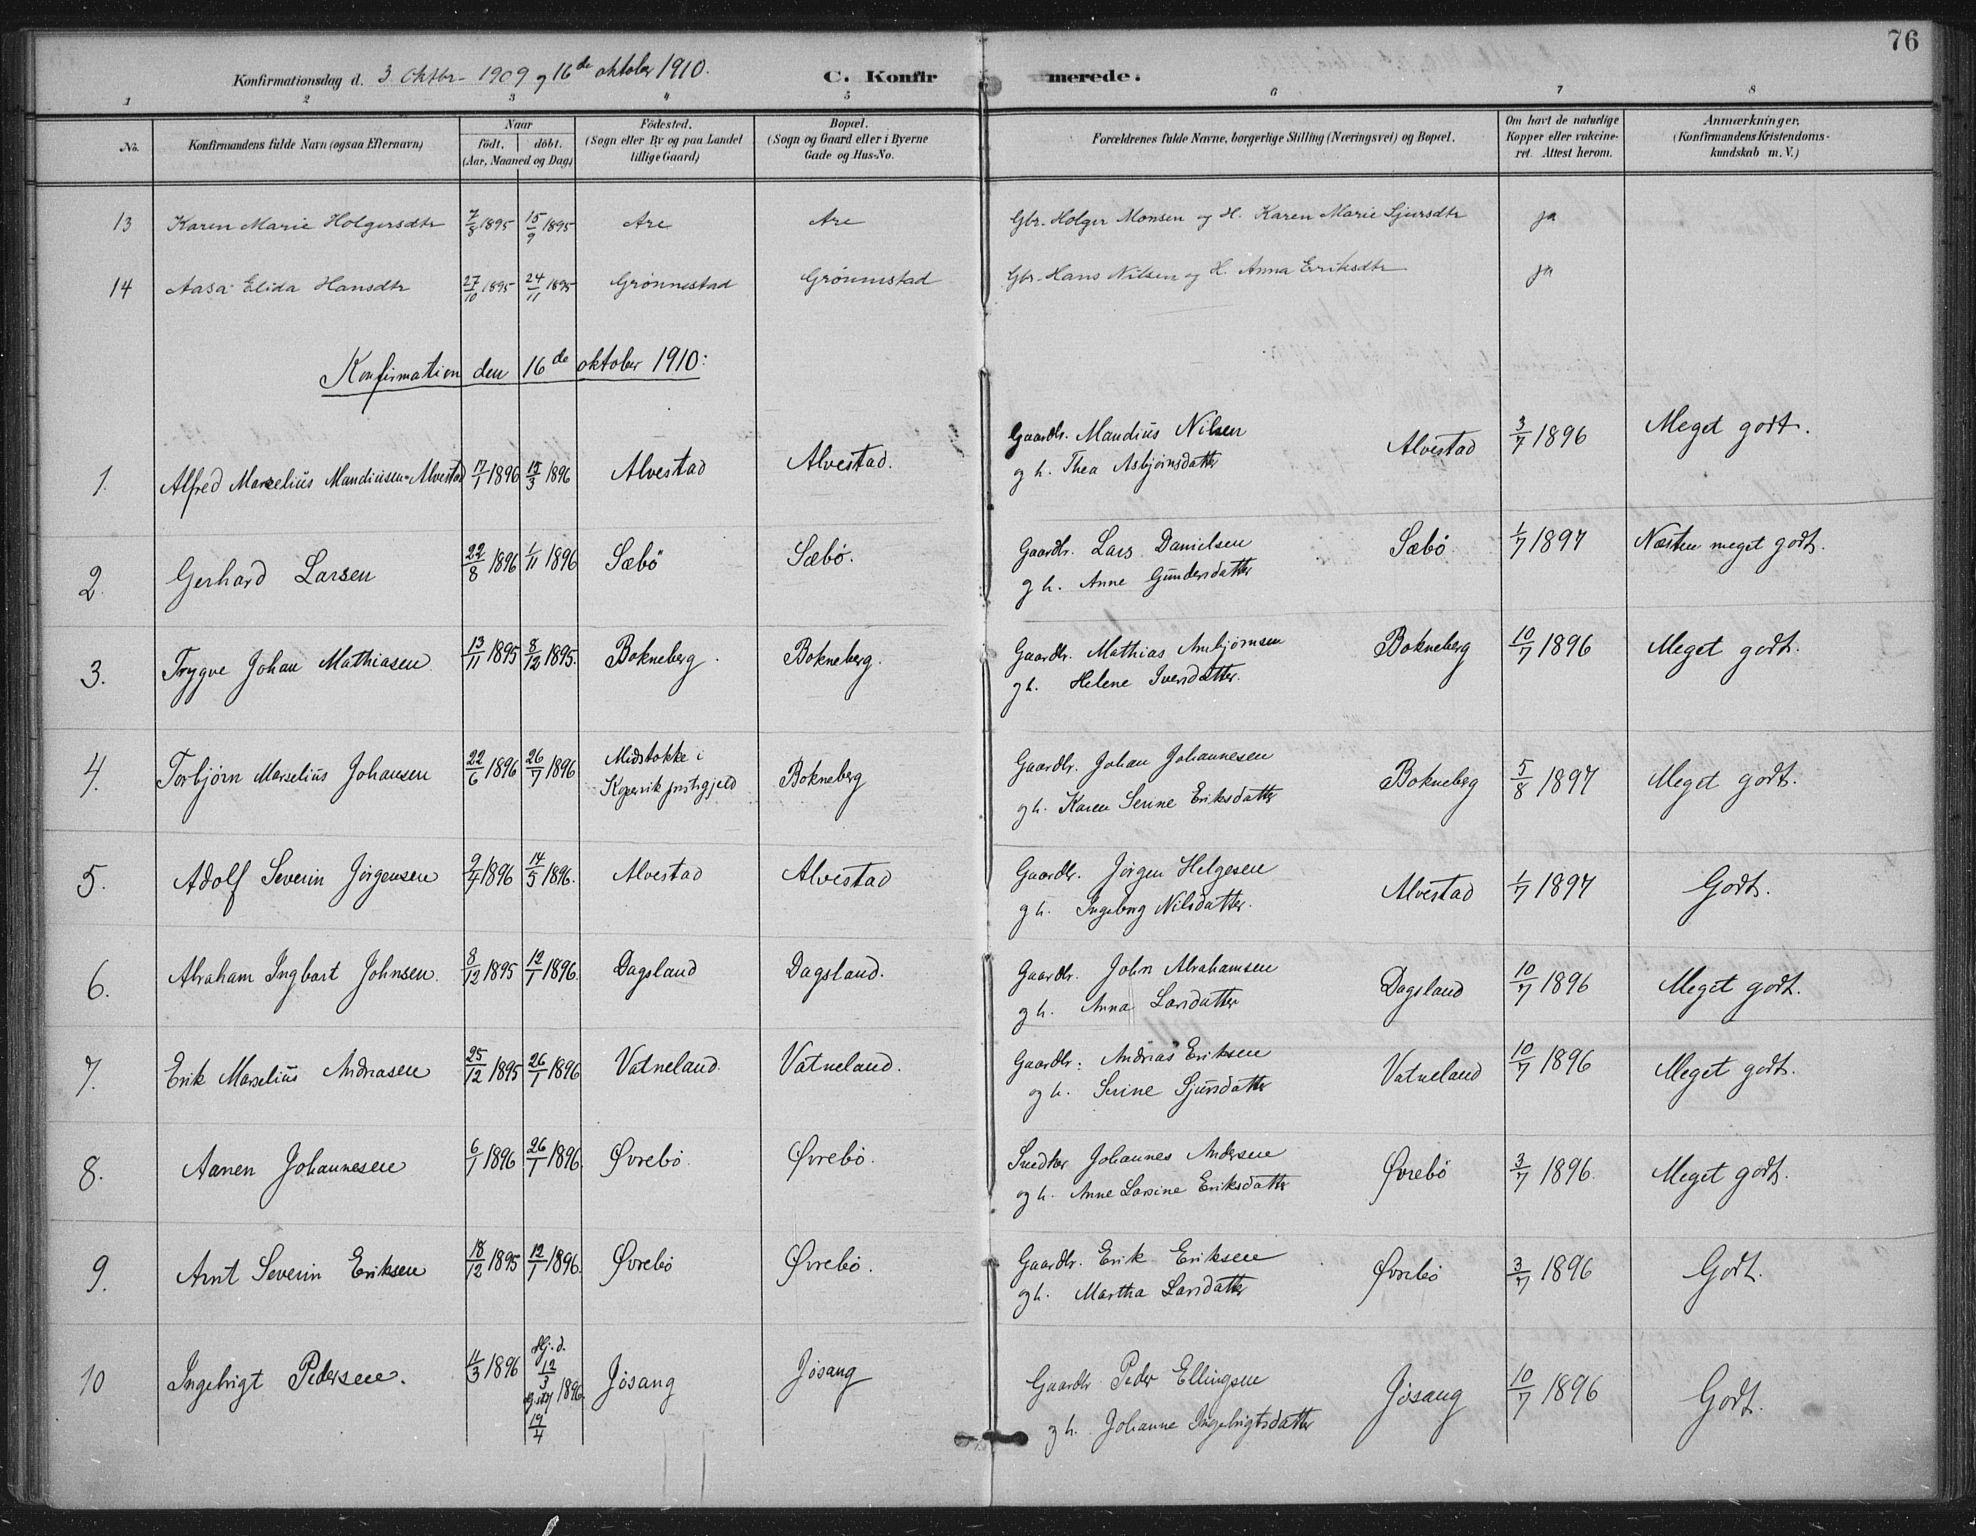 76
Konfirmationsdag d. 3 oktbr. 1909 og 16de oktober 1910. C. Konfirmerede.
1 2 3 4 5 6 7 8
No. Konfirmandens fulde Navn (ogsaa Efternavn) Naar født. døbt. (Aar, Maaned og Dag) Fødested. (Sogn eller By og paa Landet tillige Gaard) Bopæl. (Sogn og Gaard eller i Byerne Gade og Hus-No. Forældrenes fulde Navne, borgerlige Stilling (Næringsvei) og Bopæl. Om havt de naturlige Kopper eller vakcineret. Attest herom. Anmærkninger. (Konfirmandens Kristendomskundskab m. V.)
13 Karen Marie Holgersdtr 7/8 1895 15/9 1895 Are Are Gbr. Holger Monsen og H. Karen Marie Sjursdtr ja
14 Aasa Elida Hansdtr 27/10 1895 24/11 1895 Grønnestad Grønnestad Gbr. Hans Nilsen og H. Anna Eriksdtr ja
Konfirmation den 16de oktober 1910:
1. Alfred Marselius Mandiusen Alvestad 17/1 1896 15/3 1896 Alvestad Alvestad. Gaardbr. Mandius Nilsen Alvestad 3/7 1896 Meget godt.
og h. Thea Asbjørnsdatter
2. Gerhard Larsen 22/8 1896 1/11 1896 Sæbö Sæbö. Gaardbr. Lars Danielsen Sæbö 1/7 1897 Næsten meget godt.
og h. Anne Gundersdatter
3. Trygve Johan Mathiasen 13/11 1895 8/12 1895. Bokneberg. Bokneberg. Gaardbr. Mathias Ambjørnsen Bokneberg 10/7 1896 Meget godt.
og h. Helene Iversdatter.
4. Torbjørn Marselius Johansen 22/6 1896 26/7 1896 Midstokke i Bokneberg Gaardbr. Johan Johannesen Bokneberg 5/8 1897 Meget godt.
Kopervik prstgjeld og h. Karen Serine Eriksdatter
5. Adolf Severin Jörgensen 9/4 1896 14/5 1896. Alvestad Alvestad Gaardbr. Jörgen Helgesen Alvestad 1/7 1897 Godt.
og h. Ingeborg Nilsdatter.
6. Abraham Ingbart Johnsen. 8/12 1895 12/1 1896. Dagsland Dagsland. Gaardbr. John Abrahamsen Dagsland 10/7 1896 Meget godt.
og h. Anna Larsdatter
7. Erik Marselius Andreasen 25/12 1895 26/1 1896 Vatneland. Vatneland. Gaardbr. Andreas Eriksen Vatneland 10/7 1896 Meget godt.
og h. Serine Sjursdatter
8. Aanen Johannesen 6/1 1896 26/1 1896. Øvrebö. Øvrebö. Snedker Johannes Andersen Øvrebö 3/7 1896. Meget godt.
og h. Anne Larsine Eriksdatter
9. Arnt Severin Eriksen 18/12 1895 12/1 1896. Øvrebö Øvrebö. Gaardbr. Erik Eriksen Øvrebö 3/7 1896 Godt.
og h. Martha Larsdatter
10 Ingebrigt Pedersen. 11/3 1896 Hj. d. 12/3 1896 19/4 Jösang Jösang Gaardbr Peder Ellingsen Jösang 10/7 1896 Godt.
og h. Johanne Ingebrigtsdatter